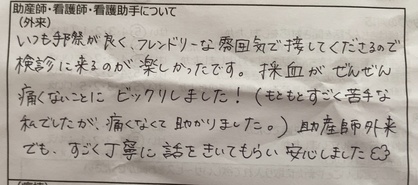 助産師・看護師・看護助手について
(外来)
いつも雰囲気が良く、フレンドリーな雰囲気で接してくださるので
検診に来るのが楽しかったです。採血がぜんぜん
痛くないことにビックリしました!(もともとすごく苦手な
私でしたが、痛くなくて助かりました。)助産師外来
でも、すごく丁寧に話をきいてもらい安心しました